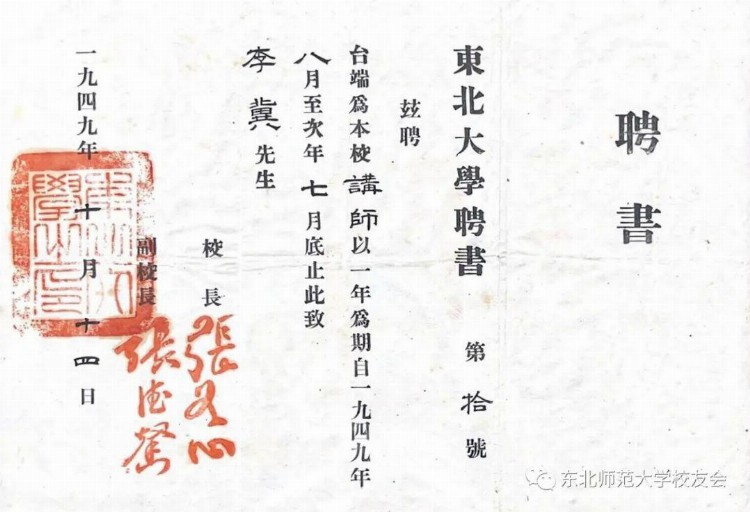 聘書
東北大學聘書 第拾號
茲聘
台端爲本校講師以一年爲期自一九四九年
八月至次年七月底止此致
李冀先生
校長 張如心
副校長 張德馨
一九四九年十月十四日
東北大學之印
东北师范大学校友会